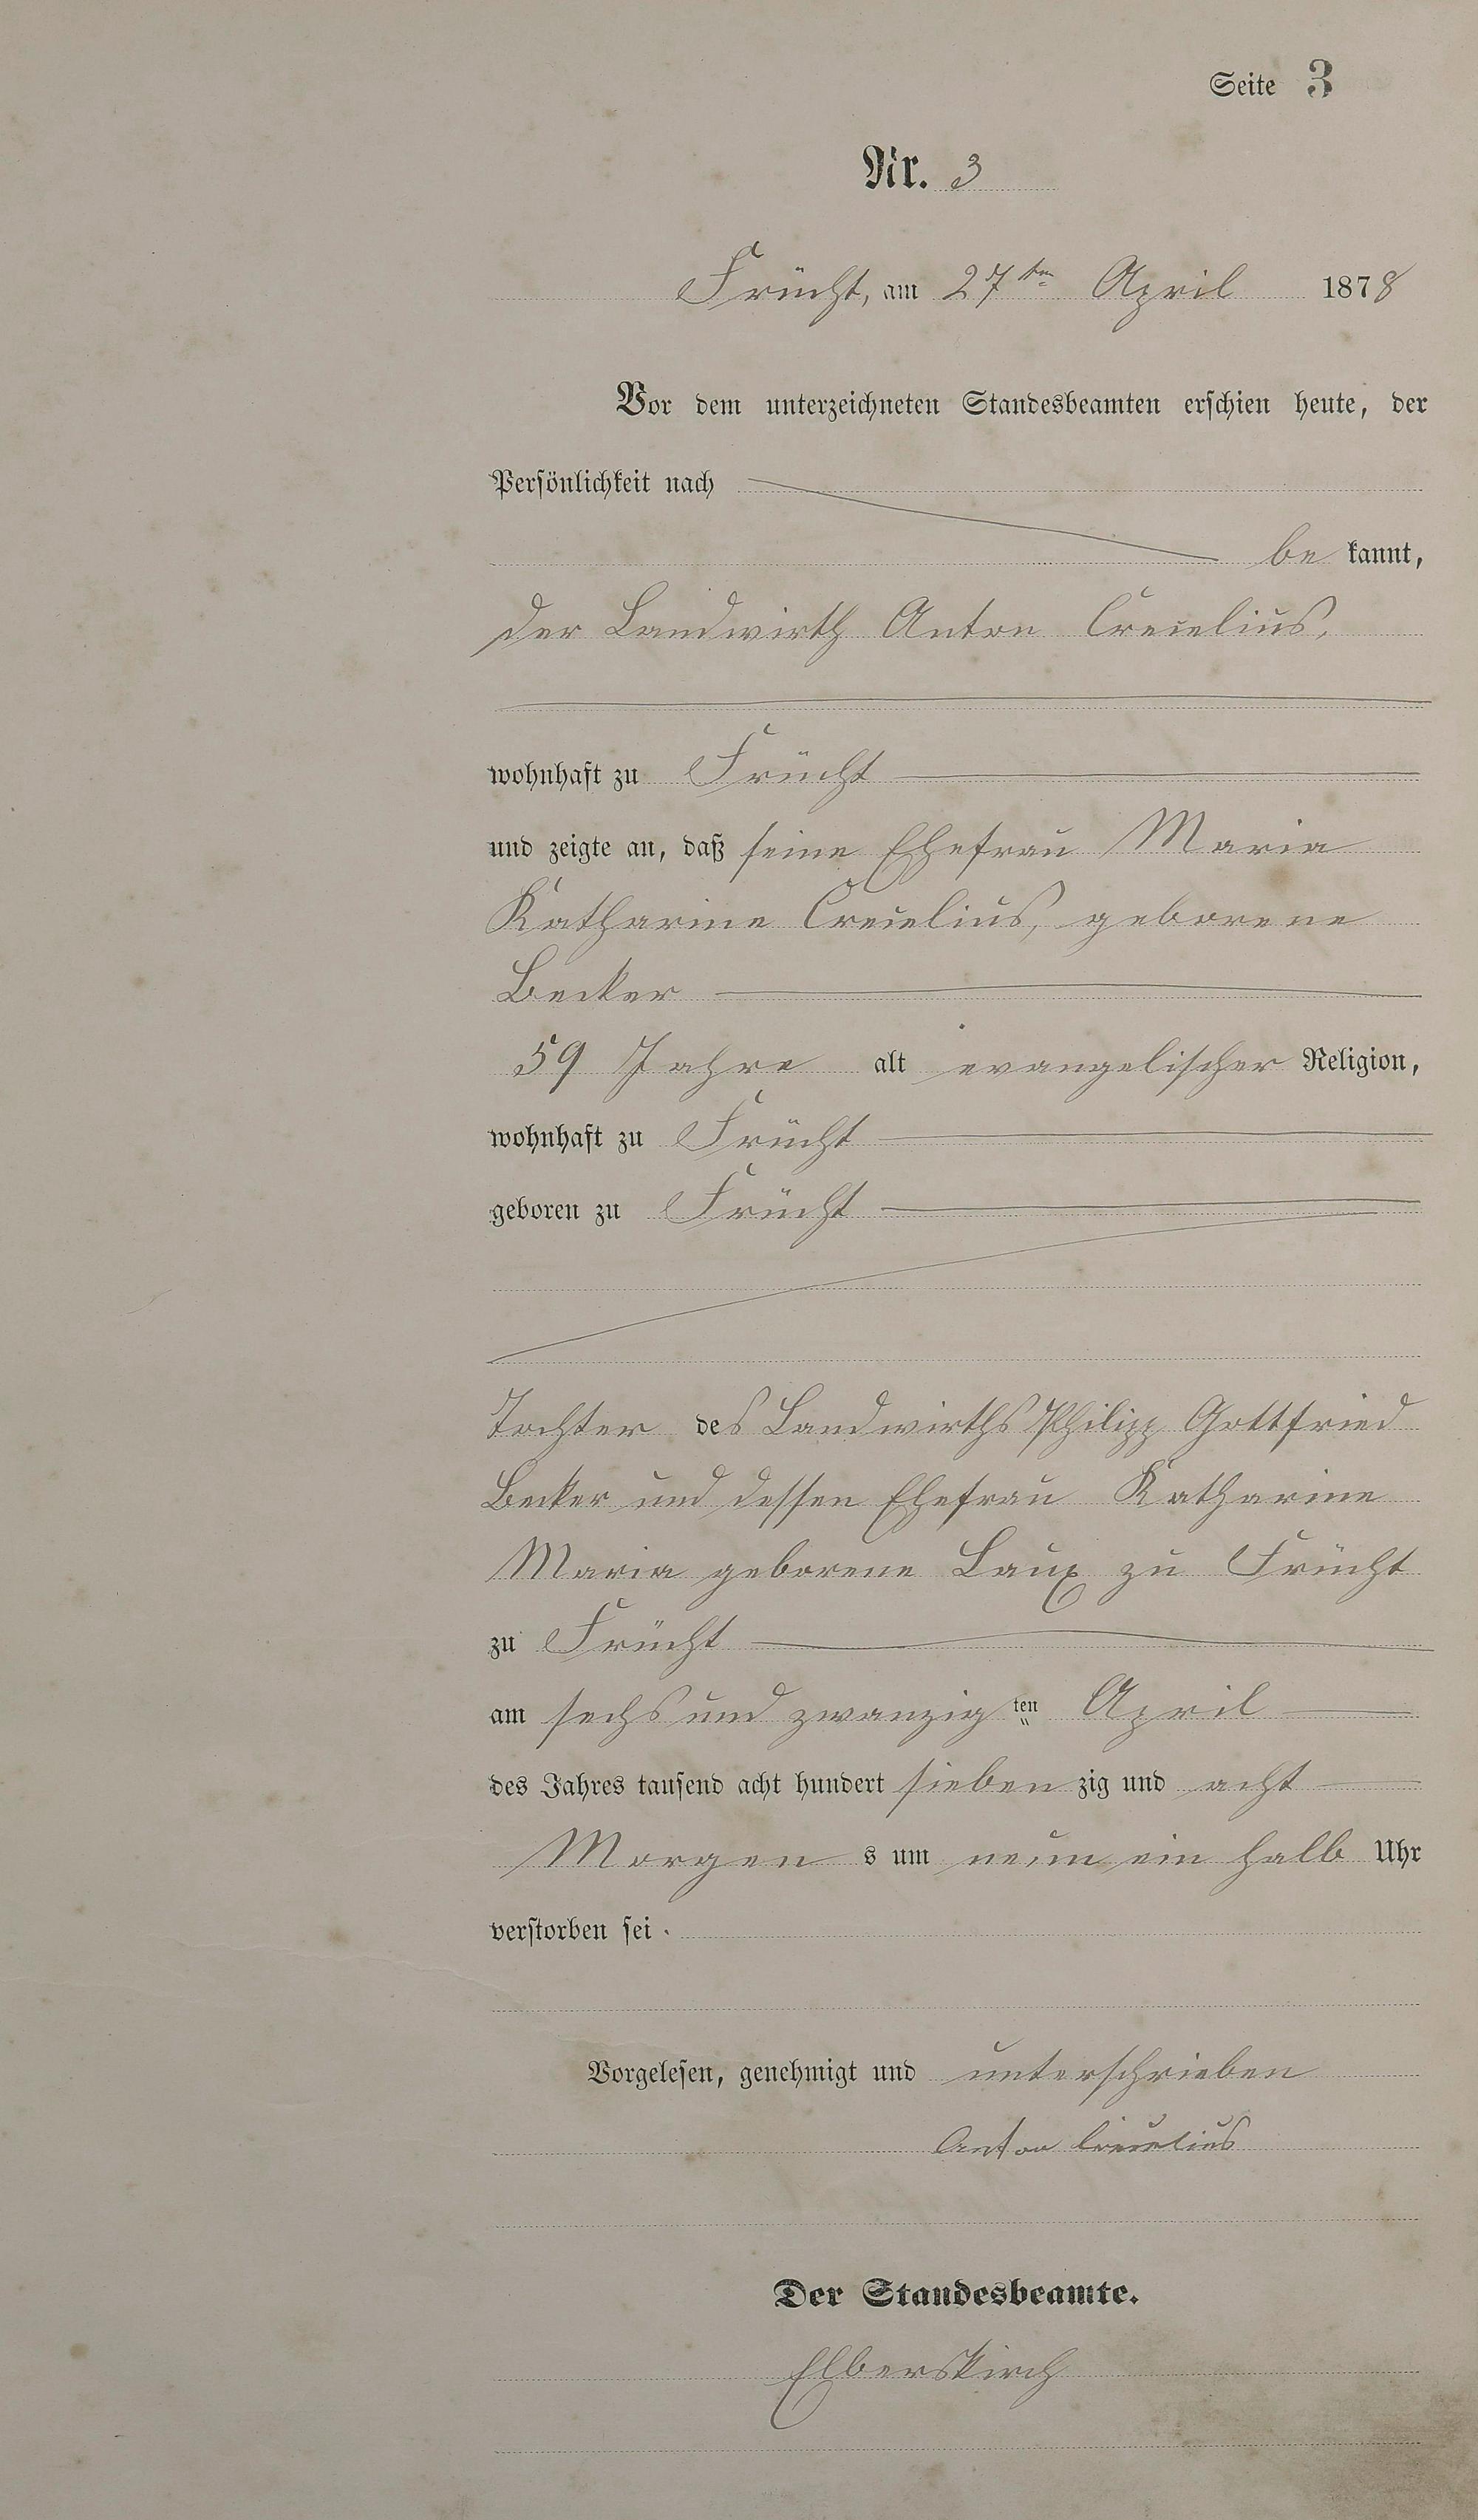 Seite 3
Nr. 3
Frücht, am 27ten April 1878
Vor dem unterzeichneten Standesbeamten erschien heute, der
Persönlichkeit nach
be kannt,
der Landwirth Anton Creuelius,
wohnhaft zu Frücht
und zeigte an, daß seine Ehefrau Maria
Katharine Creuelius, geborene
Becker
59 Jahre alt evangelischer Religion,
wohnhaft zu Frücht
geboren zu Frücht
Tochter des Landwirths Philipp Gottfried
Becker und dessen Ehefrau Katharine
Maria geborene Laux zu Frücht
zu Frücht
am sechs und zwanzig ten April
des Jahres tausend acht hundert sieben zig und acht
Morgen s um neun ein halb Uhr
verstorben sei.
Vorgelesen, genehmigt und unterschrieben
Anton Creuelius
Der Standesbeamte.
Elberskirch